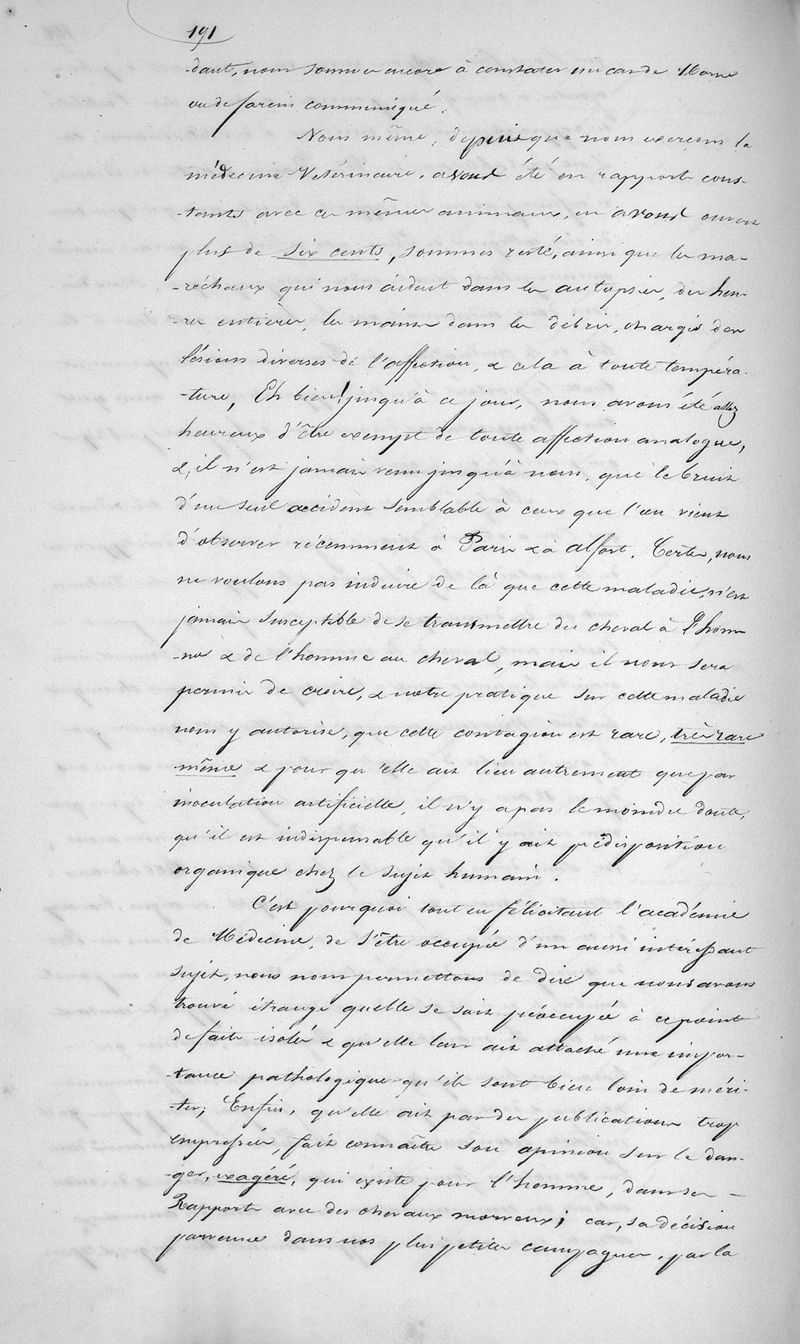 191
-dant, nous sommes encore à constater un cas de Morve
ou de farcin communiqué.
Nous même, depuis que nous exerçons la
médecine Vétérinaire, avons été en rapports cons-
-tants avec ces mêmes animaux, en avons ouvert
plus de six cents, sommes resté, ainsi que les ma-
-réchaux qui nous aident dans les autopsies, des heu-
-res entières, les mains dans les débris, chargés des
lésions diverses de l'affection, & cela à toute tempéra-
-ture, Eh bien! jusqu'à ce jour, nous avons été assez
heureux d'être exempt de toute affection analogue,
&, il n'est jamais venu jusqu'à nous, que le bruit
d'un seul accident semblable à ceux que l'on vient
d'observer récemment à Paris & à alfort. Certes, nous
ne voulons pas induire de là que cette maladie, n'est
jamais susceptible de se transmettre du cheval à l'hom
-me & de l'homme au cheval, mais il nous sera
permis de croire, & notre pratique sur cette maladie
nous y autorise, que cette contagion est rare, très rare
même & pour qu'elle ait lieu autrement que par
inoculation artificielle, il n'y a pas le moindre doute,
qu'il est indispensable qu'il y ait prédisposition
organique chez le sujet humain.
C'est pourquoi tout en félicitant l'académie
de Médecine, de s'être occupée d'un aussi intéressant
sujet, nous nous permettons de dire que nous avons
trouvé étrange quelle se soit préoccupée à ce point
de faits isolés & qu'elle leur ait attaché une impor-
-tance pathologique qu'ils sont bien loin de méri-
-ter; Enfin, qu'elle ait par des publications trop
empressées, fait connaître son opinion sur le dan-
-ger, exagéré, qui existe pour l'homme, dans ses -
Rapports avec des chevaux morveux; car, sa décision
parvenue dans nos plus petites campagnes, par la